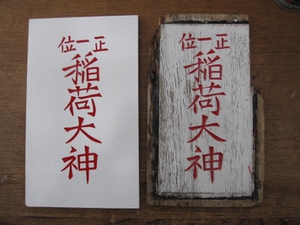 正一位
稲荷大神
正一位
稲荷大神